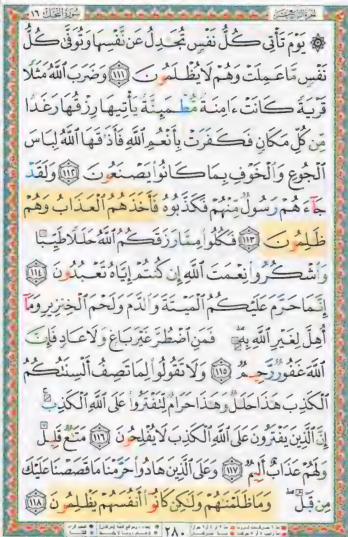 سُورَةُ النَّحۡلِ ١٦
۞ يَوۡمَ تَأۡتِي كُلُّ نَفۡسٖ تُجَٰدِلُ عَن نَّفۡسِهَا وَتُوَفَّىٰ كُلُّ
نَفۡسٖ مَّا عَمِلَتۡ وَهُمۡ لَا يُظۡلَمُونَ ١١١ وَضَرَبَ ٱللَّهُ مَثَلٗا
قَرۡيَةٗ كَانَتۡ ءَامِنَةٗ مُّطۡمَئِنَّةٗ يَأۡتِيهَا رِزۡقُهَا رَغَدٗا
مِّن كُلِّ مَكَانٖ فَكَفَرَتۡ بِأَنۡعُمِ ٱللَّهِ فَأَذَٰقَهَا ٱللَّهُ لِبَاسَ
ٱلۡجُوعِ وَٱلۡخَوۡفِ بِمَا كَانُواْ يَصۡنَعُونَ ١١٢ وَلَقَدۡ
جَآءَهُمۡ رَسُولٞ مِّنۡهُمۡ فَكَذَّبُوهُ فَأَخَذَهُمُ ٱلۡعَذَابُ وَهُمۡ
ظَٰلِمُونَ ١١٣ فَكُلُواْ مِمَّا رَزَقَكُمُ ٱللَّهُ حَلَٰلٗا طَيِّبٗا
وَٱشۡكُرُواْ نِعۡمَتَ ٱللَّهِ إِن كُنتُمۡ إِيَّاهُ تَعۡبُدُونَ ١١٤
إِنَّمَا حَرَّمَ عَلَيۡكُمُ ٱلۡمَيۡتَةَ وَٱلدَّمَ وَلَحۡمَ ٱلۡخِنزِيرِ وَمَآ
أُهِلَّ لِغَيۡرِ ٱللَّهِ بِهِۦۖ فَمَنِ ٱضۡطُرَّ غَيۡرَ بَاغٖ وَلَا عَادٖ فَإِنَّ
ٱللَّهَ غَفُورٞ رَّحِيمٞ ١١٥ وَلَا تَقُولُواْ لِمَا تَصِفُ أَلۡسِنَتُكُمُ
ٱلۡكَذِبَ هَٰذَا حَلَٰلٞ وَهَٰذَا حَرَامٞ لِّتَفۡتَرُواْ عَلَى ٱللَّهِ ٱلۡكَذِبَۚ
إِنَّ ٱلَّذِينَ يَفۡتَرُونَ عَلَى ٱللَّهِ ٱلۡكَذِبَ لَا يُفۡلِحُونَ ١١٦ مَتَٰعٞ قَلِيلٞ
وَلَهُمۡ عَذَابٌ أَلِيمٞ ١١٧ وَعَلَى ٱلَّذِينَ هَادُواْ حَرَّمۡنَا مَا قَصَصۡنَا عَلَيۡكَ
مِن قَبۡلُۖ وَمَا ظَلَمۡنَٰهُمۡ وَلَٰكِن كَانُوٓاْ أَنفُسَهُمۡ يَظۡلِمُونَ ١١٨
٢٨٠